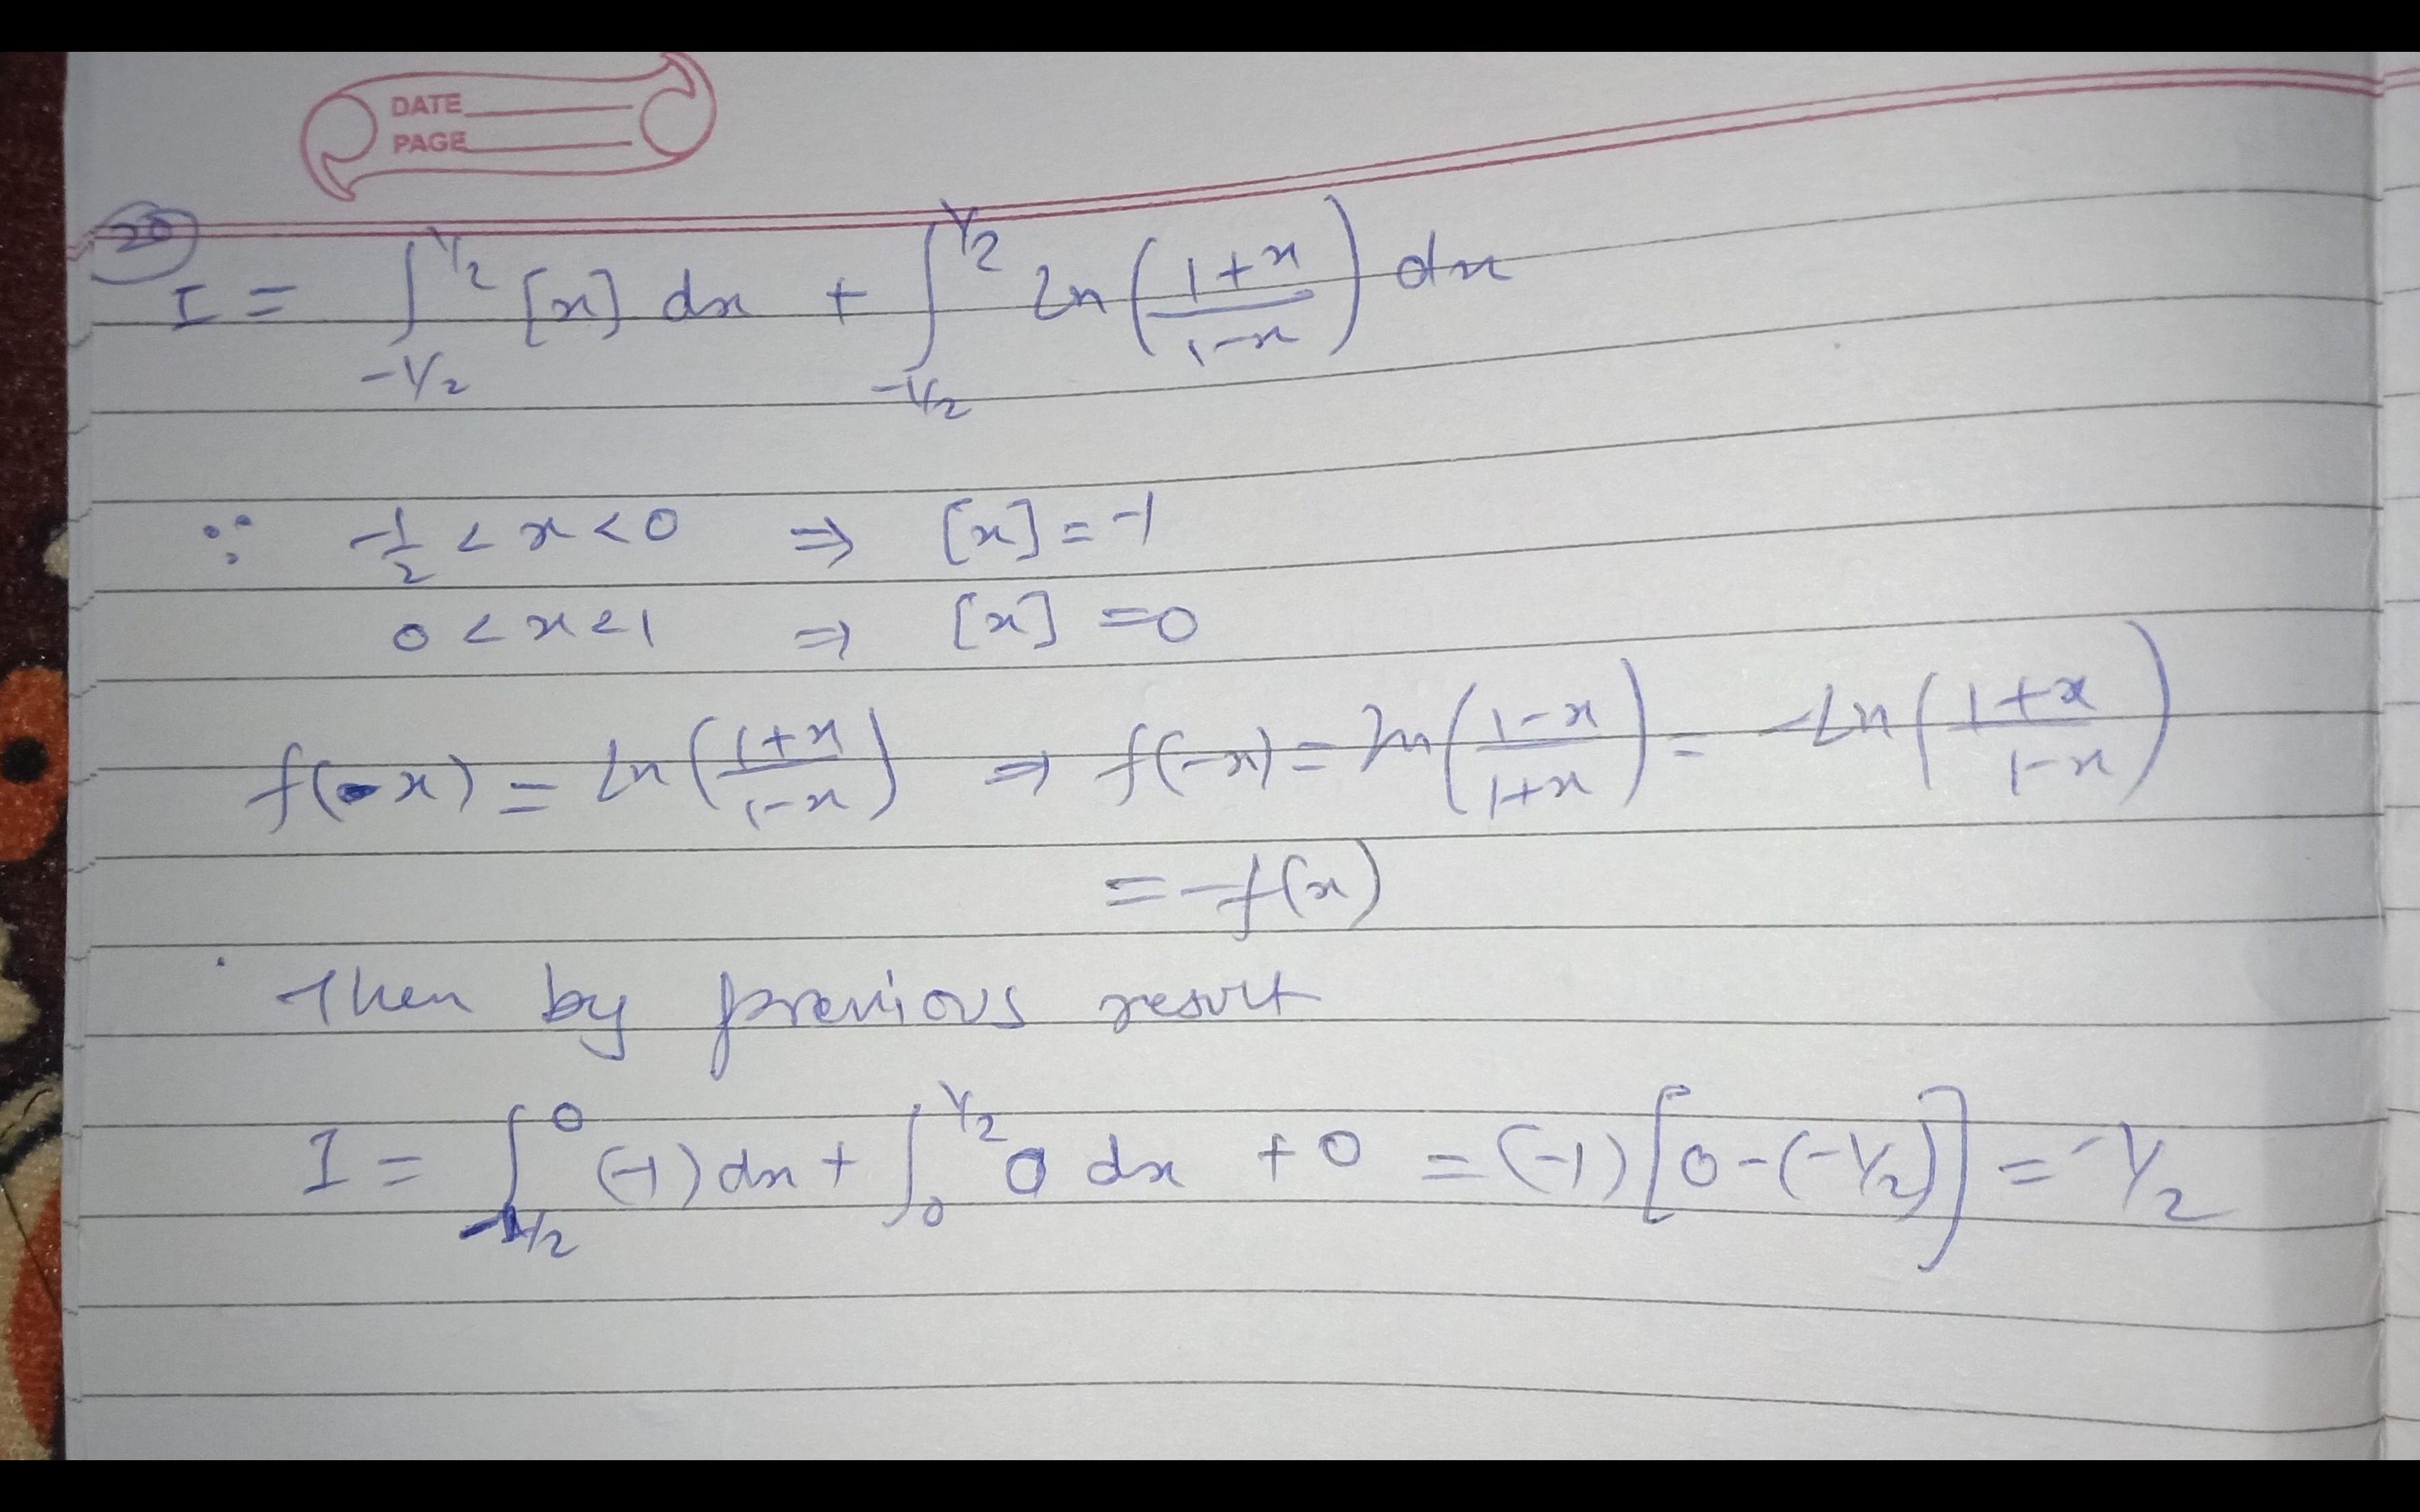 DATE
PAGE
(20)
I = ∫_{-1/2}^{1/2} [x] dx + ∫_{-1/2}^{1/2} ln((1+x)/(1-x)) dx
∵ -1/2 < x < 0 ⇒ [x] = -1
0 < x < 1 ⇒ [x] = 0
f(x) = ln((1+x)/(1-x)) ⇒ f(-x) = ln((1-x)/(1+x)) = -ln((1+x)/(1-x))
= -f(x)
Then by previous result
I = ∫_{-1/2}^{0} (-1) dx + ∫_{0}^{1/2} 0 dx + 0 = (-1)[0-(-1/2)] = -1/2